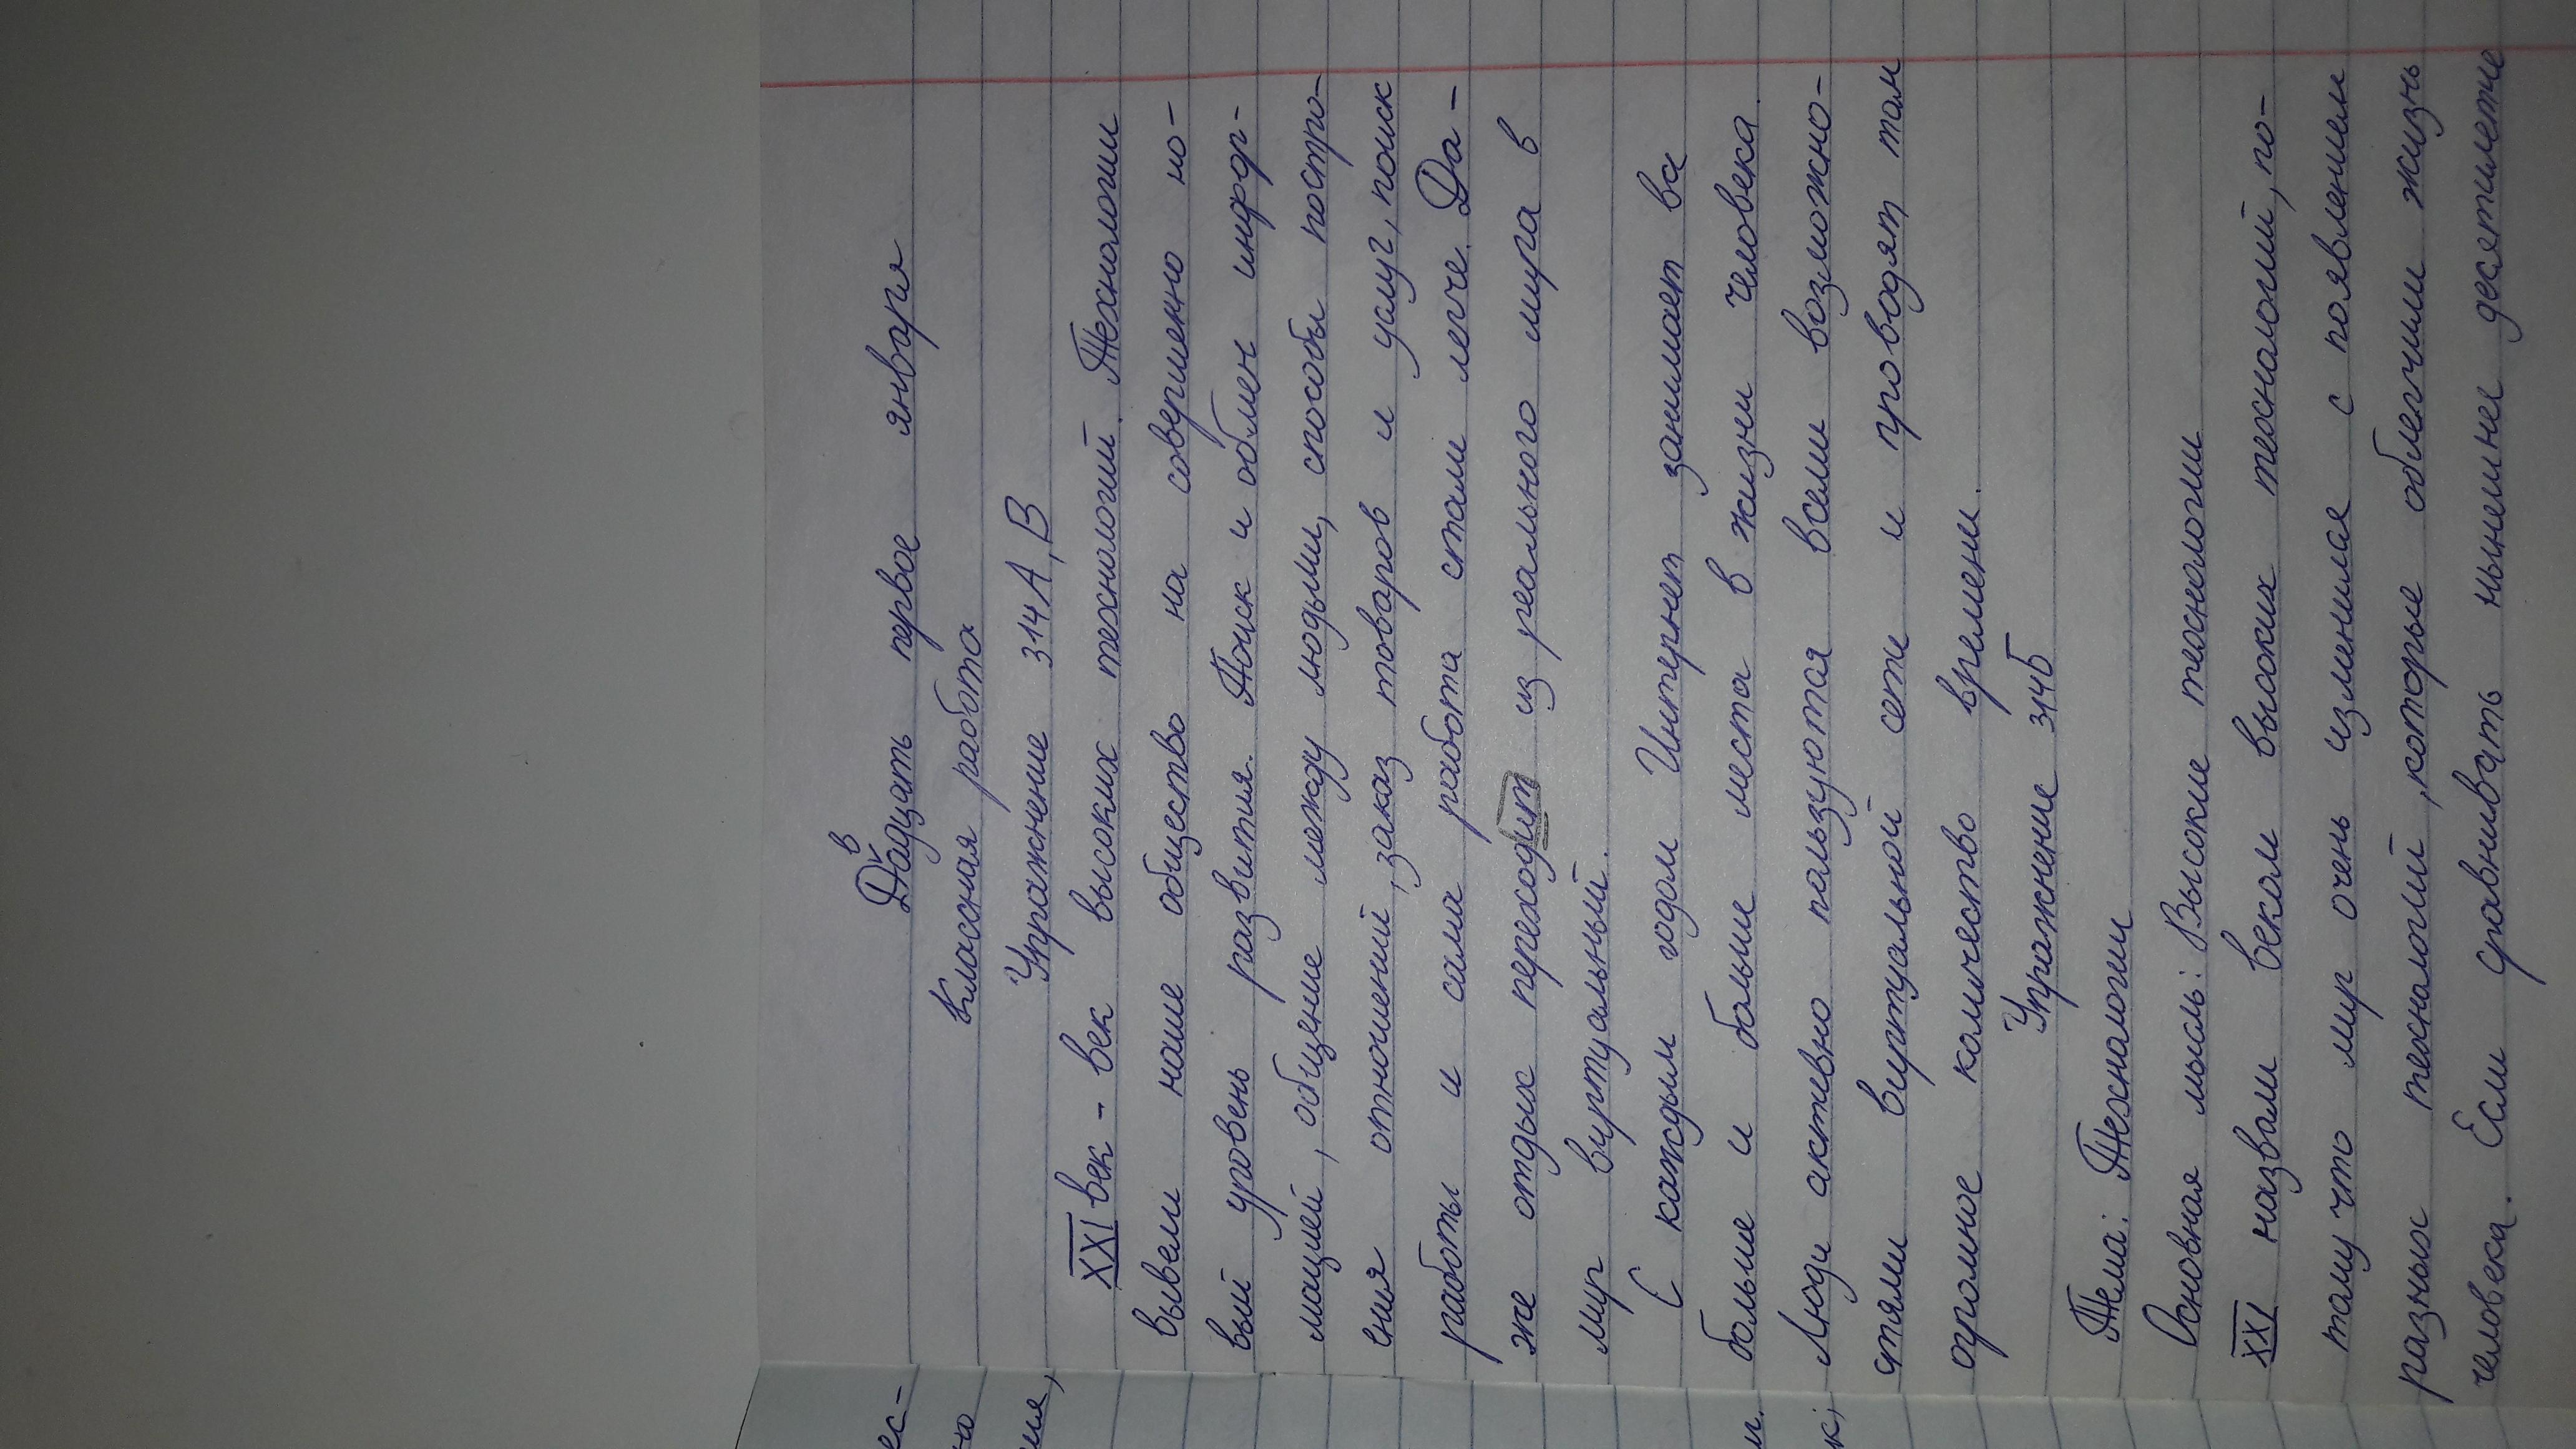 Двадцать первое января
Классная работа
Упражнение 314А,В
XXI век - век высоких технологий. Технологии
вывели наше общество на совершенно но-
вый уровень развития. Поиск и обмен инфор-
мацией, общение между людьми, способы постро-
ения отношений, заказ товаров и услуг, поиск
работы и сама работа стали легче. Да-
же отдых переходит из реального мира в
мир виртуальный.
С каждым годом Интернет занимает ва
больше и больше места в жизни человека.
Люди активно пользуются всеми возможно-
стями виртуальной сети и проводят там
огромное количество времени.
Упражнение 314Б
Тема: Технологии
Основная мысль: Высокие технологии
XXI назвали веком высоких технологий, по-
тому что мир очень изменился с появлением
разных технологий, которые облегчили жизнь
человека. Если сравнивать нынешнее десятилетие
ес-
но
ия,
и.
к;